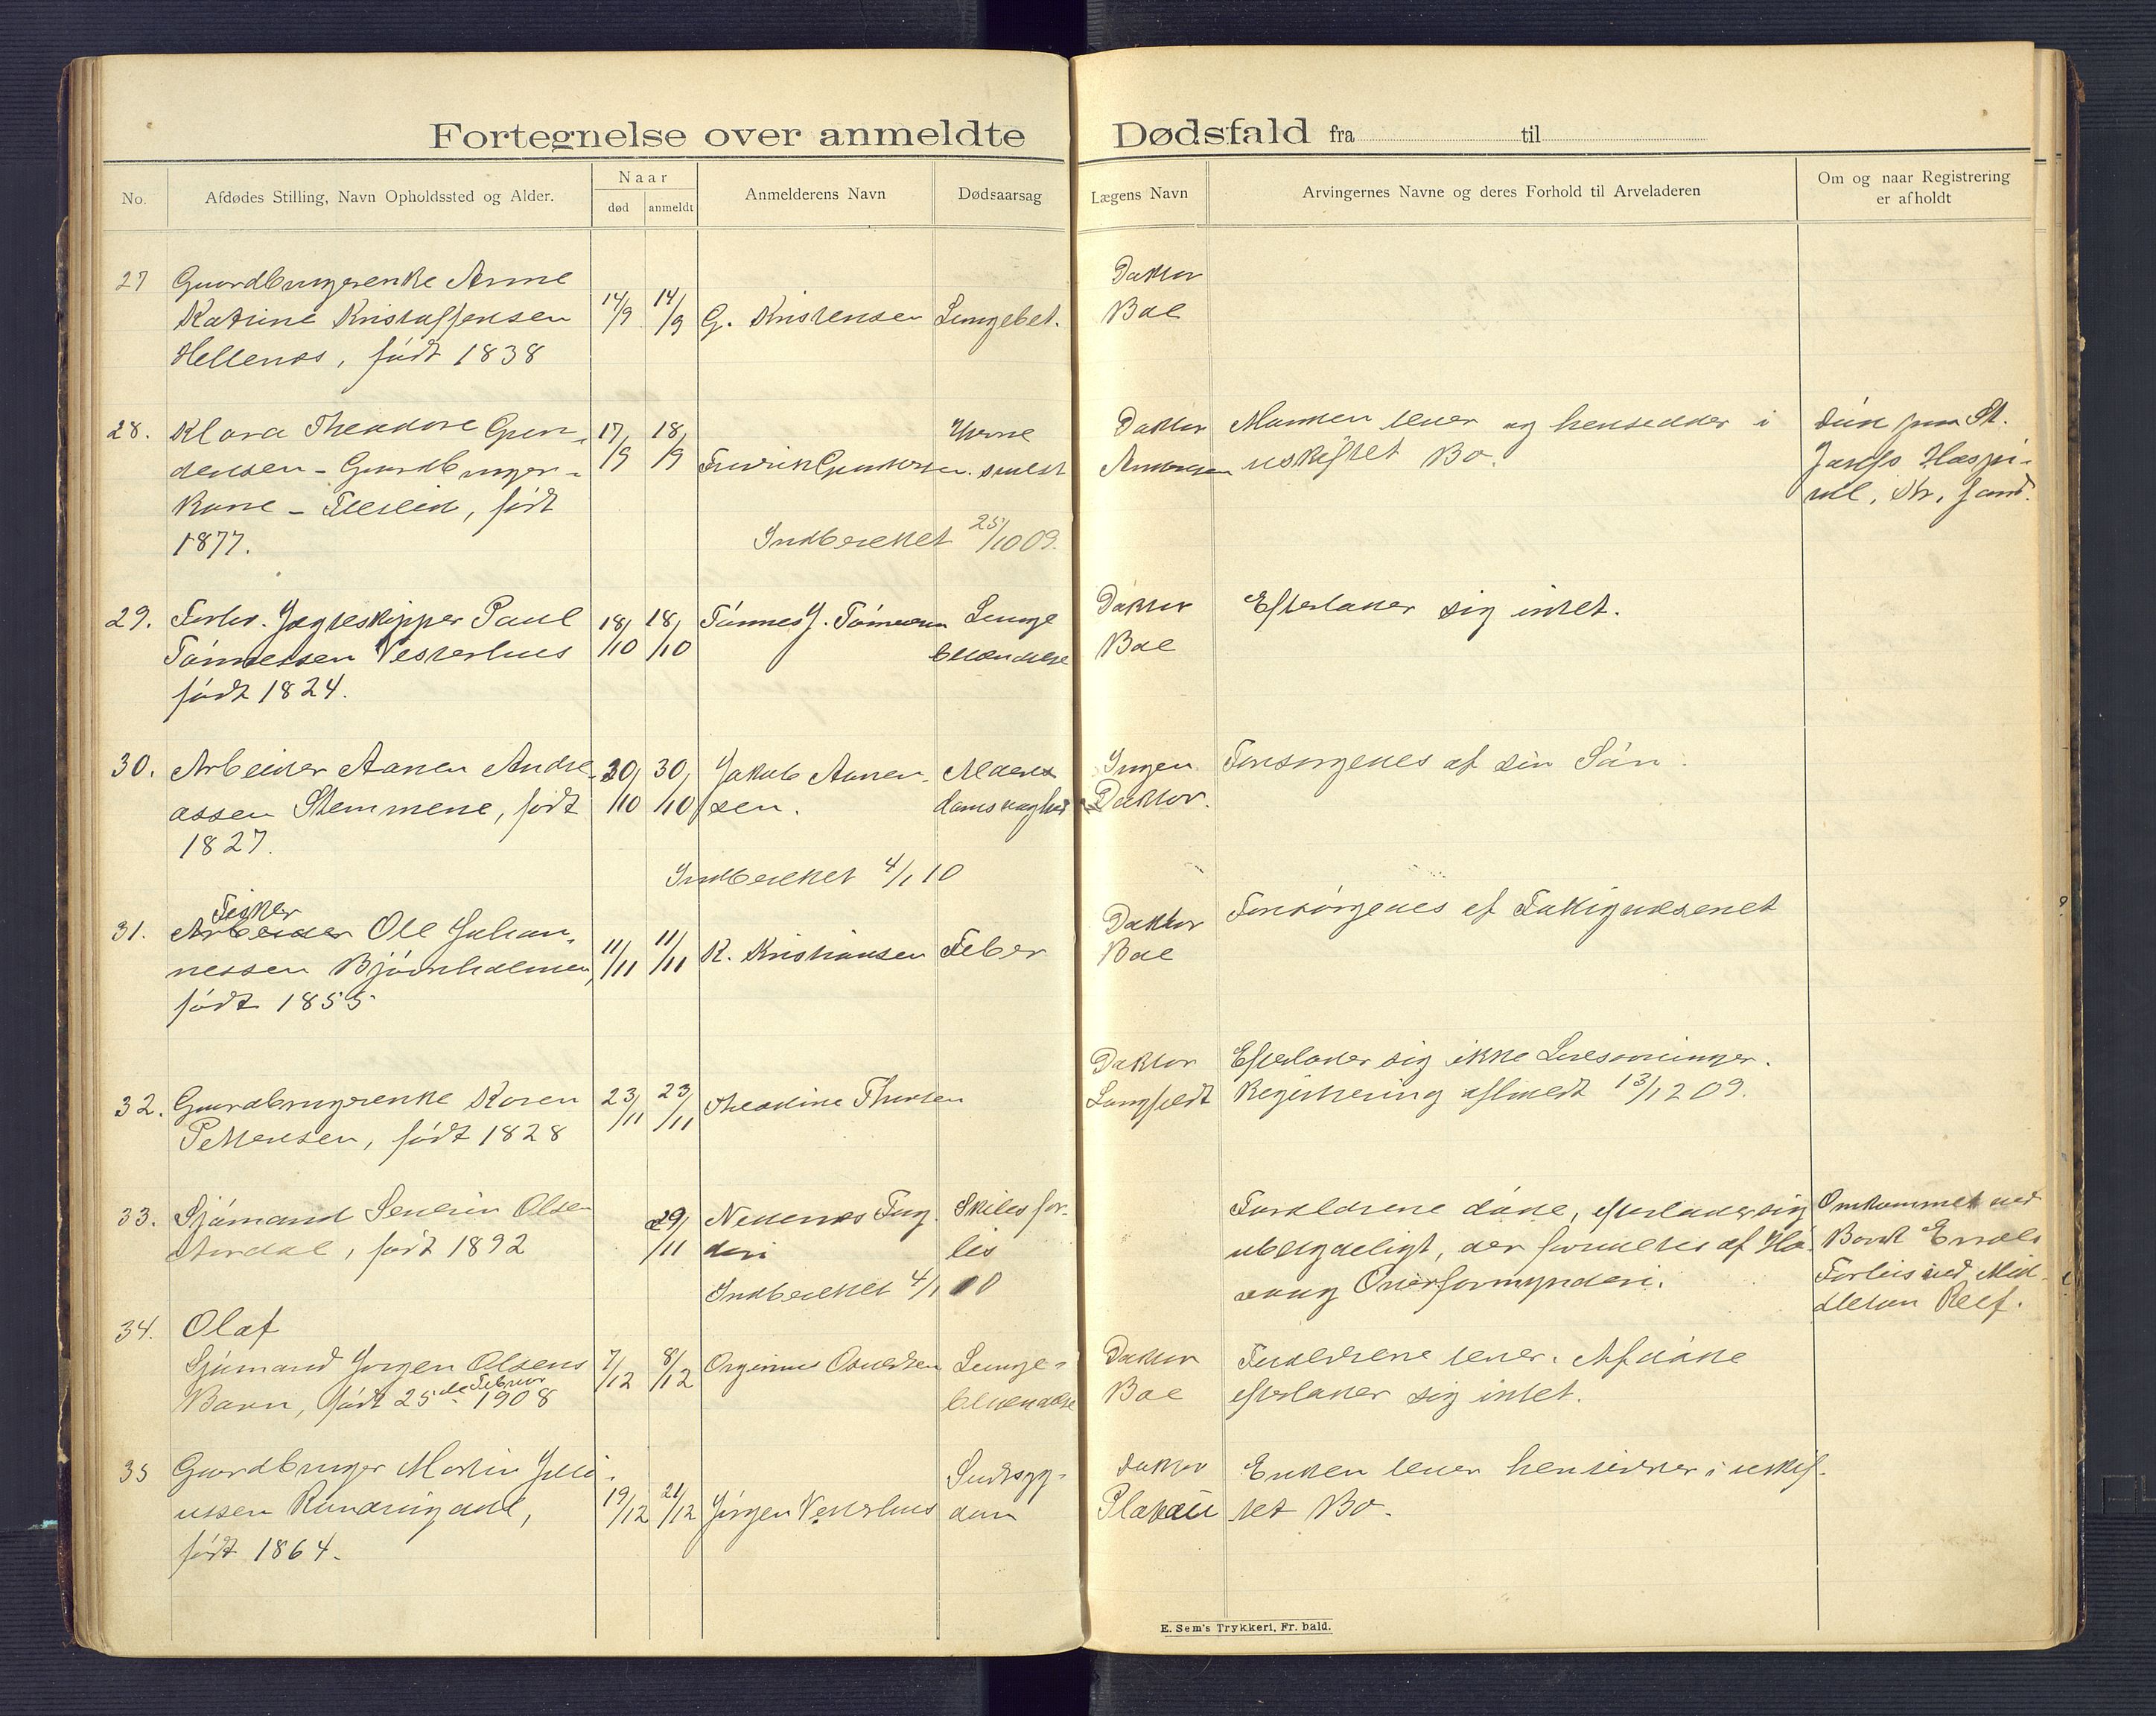 Fortegnelse over anmeldte Dødsfald fra til
No.
Afdødes Stilling, Navn Opholdssted og Alder.
Naar
død anmeldt
Anmelderens Navn
Dødsaarsag
Lægens Navn
Arvingernes Navne og deres Forhold til Arveladeren
Om og naar Registrering
er afholdt
27 Gaardbrugerenke Anne
Katrine Kristoffensen
Hellenes, født 1838
14/9 14/9 G. Kristensen Lungebet.
Doktor
Boe
28. Klara Theodore Gun-
dersen - Gaardbruger-
kone - født
1877.
17/9 18/9 Fredrik Gundersen
svulst
Indberettet 25/10 09.
Doktor
Andersen
Manden lever og hensidder i
uskiftet Bo.
Død paa St.
Josefs Hospi-
tal, Kr.sand.
29. Forhv. Jagteskipper Paul
Tönnessen Vesterhus
født 1824.
18/10 18/10 Tönnes J. Tönnessen Lunge
betændelse
Doktor
Boe
Efterlader sig intet.
30. Arbeider Aanen Andre-
assen Stemmene, født
1827.
30/10 30/10 Jakob Aanen-
sen.
Alderdomssvaghed
Ingen
Doktor.
Forsørgedes af sin Sön.
Indberettet 4/1 10
Fisker
31. Arbeider Ole Johan-
nessen Bjørnholmen,
født 1855
11/11 11/11 K. Kristiansen Feber
Doktor
Boe
Forsørgedes af Fattigvæsenet
32. Gaardbrugerenke Karen
Pettersen, født 1828
23/11 23/11 Theodine Thorsen
Doktor
Langfeldt
Efterlader sig ikke Livsarvinger.
Registrering afholdt 13/12 09.
33. Sjömand Severin Olsen
Aardal, født 1892
29/11 Nedenes Fog-
deri
Skibsfor-
lis
Indberettet 4/1 10
Forældrene döde, efterlader sig
ubetydeligt, der forvaltes af Hö-
vaag Overformynderi.
Omkommet ved
Bark Errols
Forlis ved Mid-
dleton Reef.
34. Olaf
Sjömand Jorgen Olsens
Barn, født 25de Februar 1908
7/12 8/12 Osvedsen Lunge-
betændelse
Doktor
Boe
Forældrene lever. Afdöde
efterlader sig intet.
35 Gaardbruger Martin Juli-
ussen
født 1864.
19/12 21/12 Jörgen Vesterhus
Sindssyg-
dom
Doktor
Enken lever hensidder i uskif-
tet Bo.
E. Sem's Trykkeri, Fr.hald.